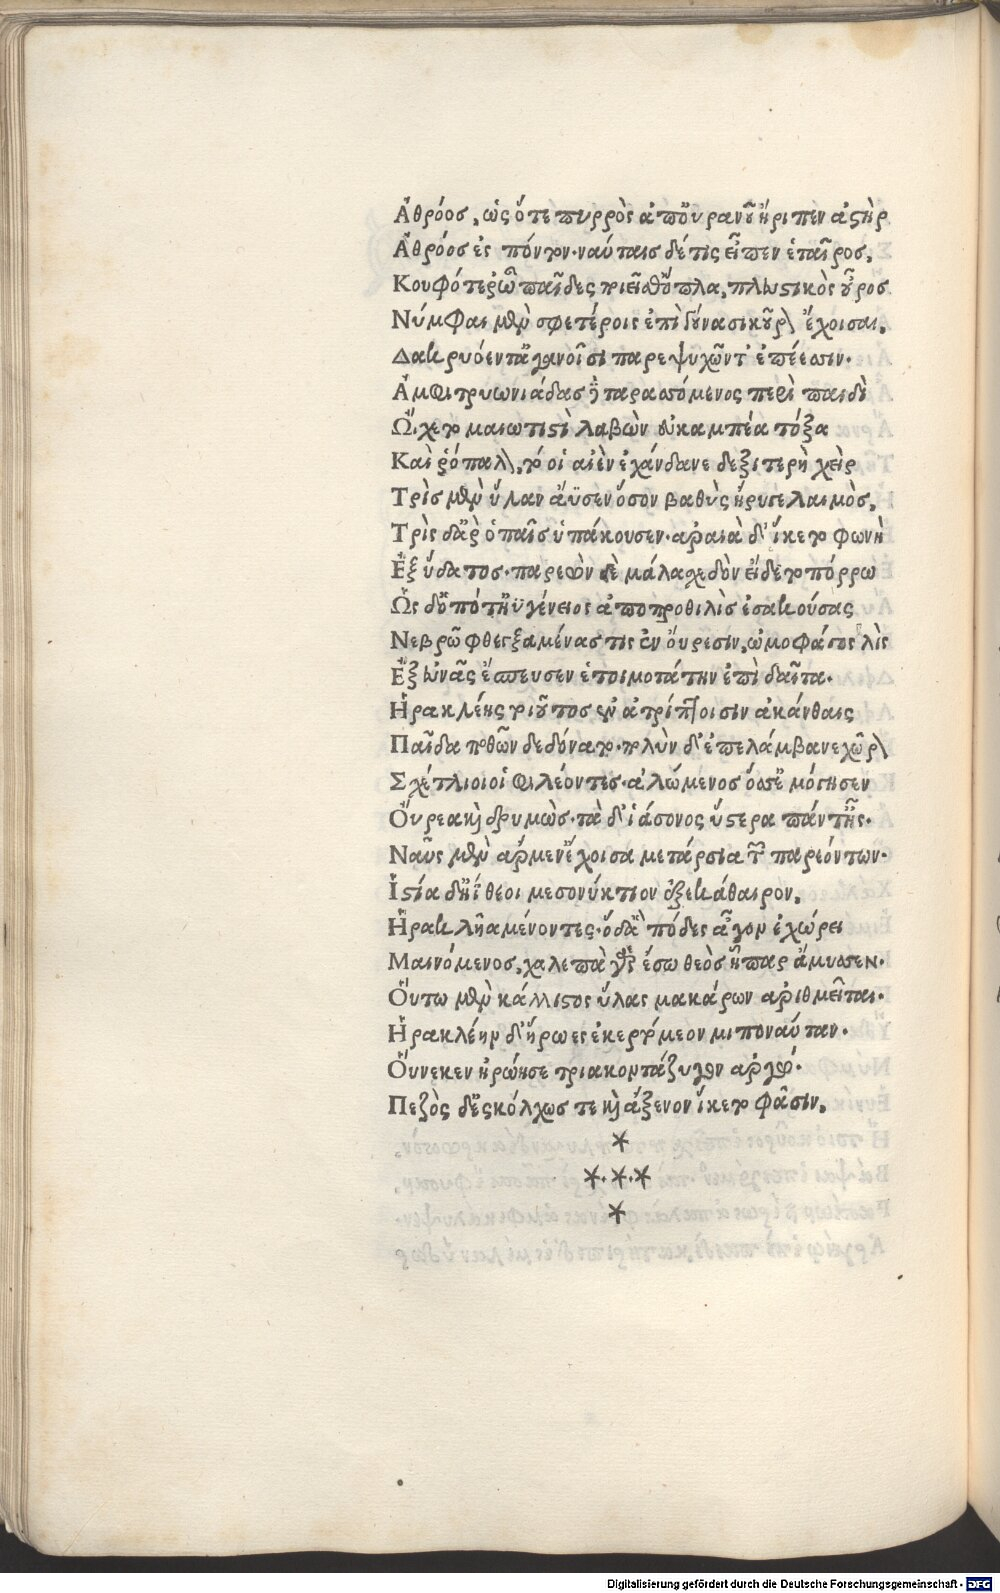 Ἀθρόος, ὡς ὅτε πυρρὸς ἀπ' οὐρανοῦ ἤριπεν ἀστὴρ
Ἀθρόος ἐς πόντον· ναύταις δέ τις εἶπεν ἑταῖρος,
Κουφότερ' ὦ παῖδες ποιεῖσθ' ὅπλα, πλωστικὸς οὖρος
Νύμφαι μὲν σφετέροις ἐπὶ γούνασι κοῦρον ἔχοισαι,
Δακρυόεντ' ἀγανοῖσι παρεψύχωντ' ἐπέεσσιν·
Ἀμφιτρυωνιάδας δὲ ταρασσόμενος περὶ παιδὶ
Ὤχετο μαιωτιστὶ λαβὼν εὐκαμπέα τόξα
Καὶ ῥόπαλον, τό οἱ αἰὲν ἐχάνδανε δεξιτερὴ χεὶρ
Τρὶς μὲν ὕλαν ἄϋσεν ὅσον βαθὺς ἤρυγε λαιμὸς,
Τρὶς δ' ἂρ ὁ παῖς ὑπάκουσεν· ἀραιὰ δ' ἵκετο φωνὴ
Ἐξ ὕδατος· παρεὼν δὲ μάλα σχεδὸν εἴδετο πόρρω
Ὡς δ' ὁπότ' ἠϋγένειος ἀποπροθι λὶς ἐσακούσας
Νεβρῶ φθεγξαμένας τις ἐν οὔρεσιν, ὠμοφάγος λὶς
Ἐξ εὐνᾶς ἔσπευσεν ἑτοιμοτάτην ἐπὶ δαῖτα.
Ἡρακλέης τοιοῦτος ἐν ἀτρίπτοισιν ἀκάνθαις
Παῖδα ποθῶν δεδόνατο· πολὺν δ' ἐπελάμβανε χῶρον
Σχέτλιοι οἱ φιλέοντες· ἀλώμενος ὅσσ' ἐμόγησεν
Οὔρεα καὶ δρυμὼς· τὰ δ' ἰάσονος ὕστερα πάντ' ἦς·
Ναῦς μὲν ἄρμεν' ἔχοισα μετάρσια τῶν παρεόντων·
Ἱστία δ' ἠΐθεοι μεσονύκτιον ἐξεκάθαιρον,
Ἡρακλῆα μένοντες· ὁ δ' ᾇ πόδες ἆγον ἐχώρει
Μαινόμενος, χαλεπὰ γὰρ ἔσω θεὸς ἧπαρ ἄμυσσεν·
Οὕτω μὲν κάλλιστος ὕλας μακάρων ἀριθμεῖται·
Ἡρακλέην δ' ἥρωες ἐκερτόμεον λιποναύταν·
Οὕνεκεν ἠρώησε τριακοντάζυγον ἀργώ·
Πεζὸς δ' ἐς κόλχως τε καὶ ἄξενον ἵκετο φᾶσιν,
*
*·*·*
*
Digitalisierung gefördert durch die Deutsche Forschungsgemeinschaft - DFG